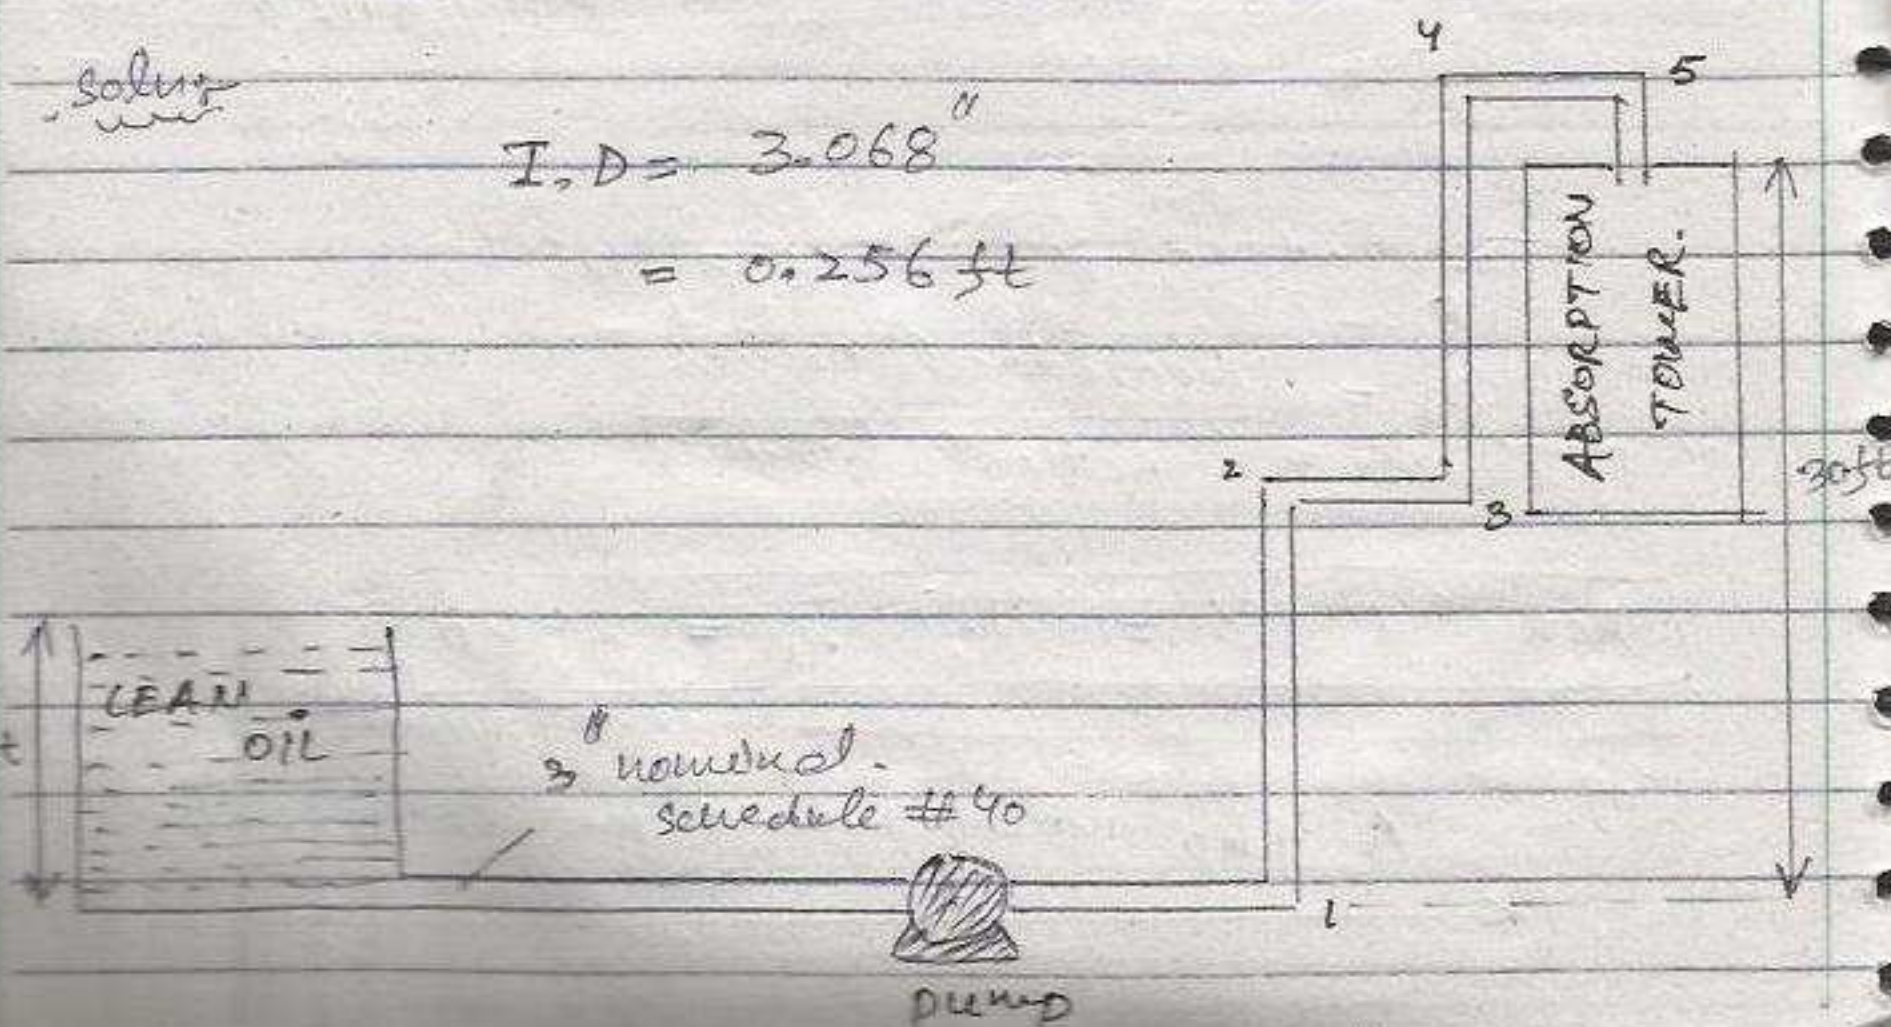 soln
I.D = 3.068"
= 0.256 ft
4
5
ABSORPTION
TOWER.
30 ft
2
3
LEAN
OIL
t
3" nominal.
schedule # 40
1
pump